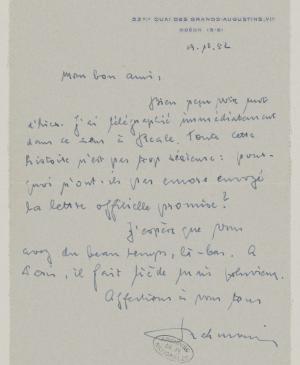 53TER QUAI DES GRANDS-AUGUSTINS, VIE
ODÉON
.12.52
Mon bon ami,
Bien reçu votre mot
d'hier. J'ai télégraphié immédiatement
dans ce sens à Toute cette
histoire n'est pas trop sérieuse : pour-
quoi n'ont-ils pas encore envoyé
la lettre officielle promise ?
J'espère que vous
avez du beau temps, là-bas. A
, il fait tiède mais pluvieux.
Affections à vous tous